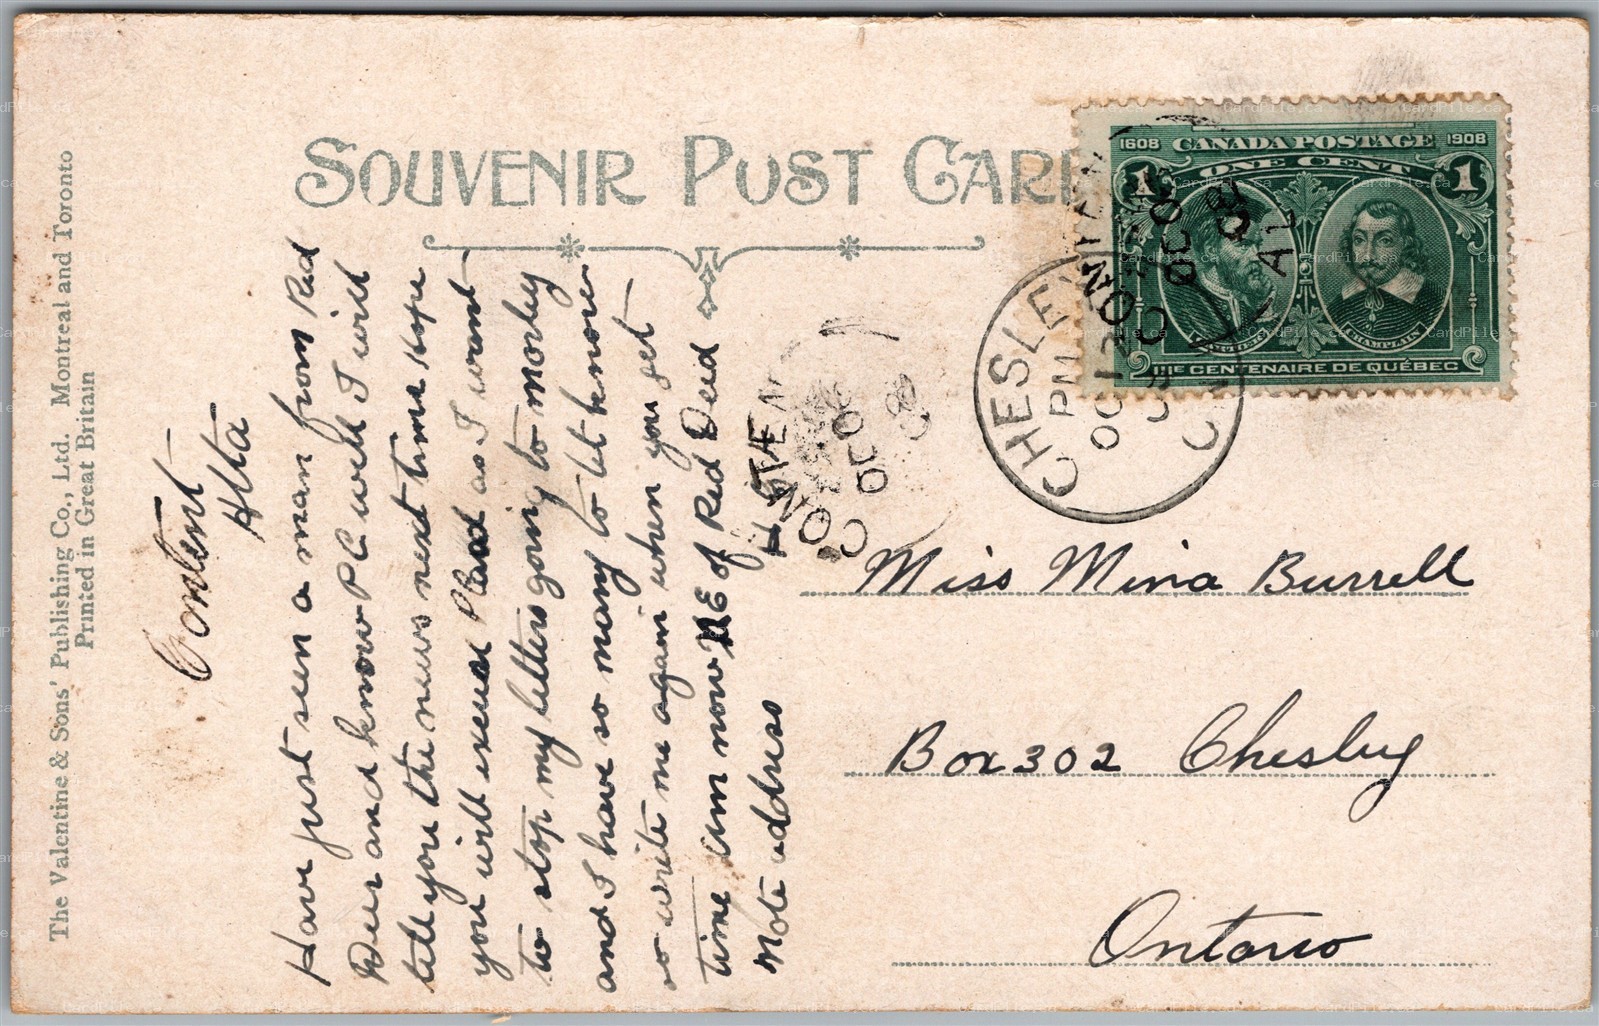 The Valentine & Sons' Publishing Co., Ltd. Montreal and Toronto
Printed in Great Britain
SOUVENIR POST CARD
1608 CANADA POSTAGE 1908
ONE CENT
1 1
CARTIER CHAMPLAIN
IIIe CENTENAIRE DE QUÉBEC
CHESLEY
PM
OC 13
08
ONT
CONTENT
OC 8
08
ALTA
CONTEN
OC
08
Content
Alta
Have just seen a man from Red
Deer and know P C well I will
tell you the news next time Hope
you will excuse Pload as I want
to stop my letters going to Morley
and I have so many to let know
so write me again when you get
time Am now NE of Red Deed
Note address
H STE
Miss Mina Burrell
Box 302 Chesley
Ontario
CardPile.ca